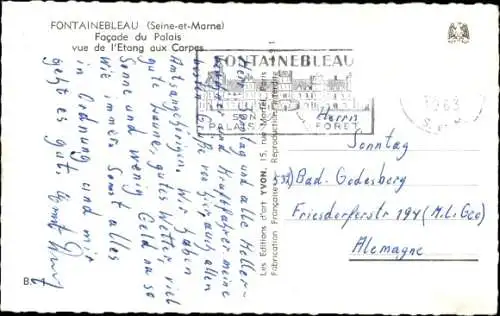 FONTAINEBLEAU (Seine-et-Marne)
Façade du Palais
vue de l'Etang aux Carpes
FONTAINEBLEAU
SON
PALAIS
FORET
1963
Herrn Sonntag und alle Heller-
meine
besten Grüße von hier, auch allen
Amtsangehörigen. Wir haben
gute Laune, gutes Wetter, viel
Sonne und wenig Geld, na so
wie immer. Sonst alles
in Ordnung und mir
geht es gut.
Les Editions d'art YVON, 15, rue Martel, Paris
Fabrication Française - Reproduction interdite
Herrn
Sonntag
532) Bad-Godesberg
Friesdorferstr 194 (M.I. Geo)
Alemagne